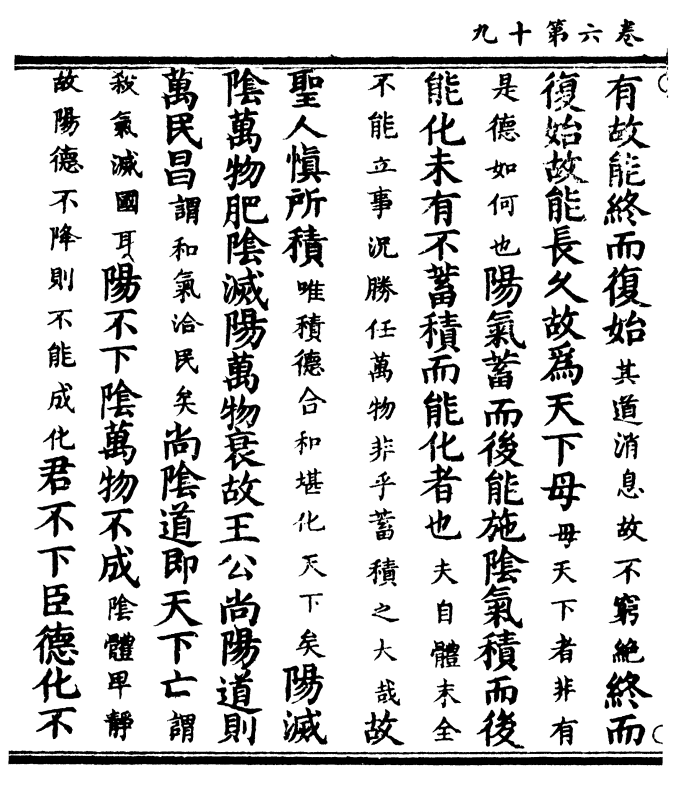 卷六第十九
有故能終而復始其道消息故不窮絶終而
復始故能長久故爲天下母毋天下者非有
是德如何也陽氣蓄而後能施陰氣積而後
能化未有不蓄積而能化者也夫自體未全
不能立事況勝任萬物非乎蓄積之大哉故
聖人慎所積唯積德合和堪化天下矣陽滅
陰萬物肥陰滅陽萬物衰故王公尚陽道則
萬民昌謂和氣洽民矣尚陰道即天下亡謂
我氣滅國耳陽不下陰萬物不成陰體卑靜
故陽德不降則不能成化君不下臣德化不